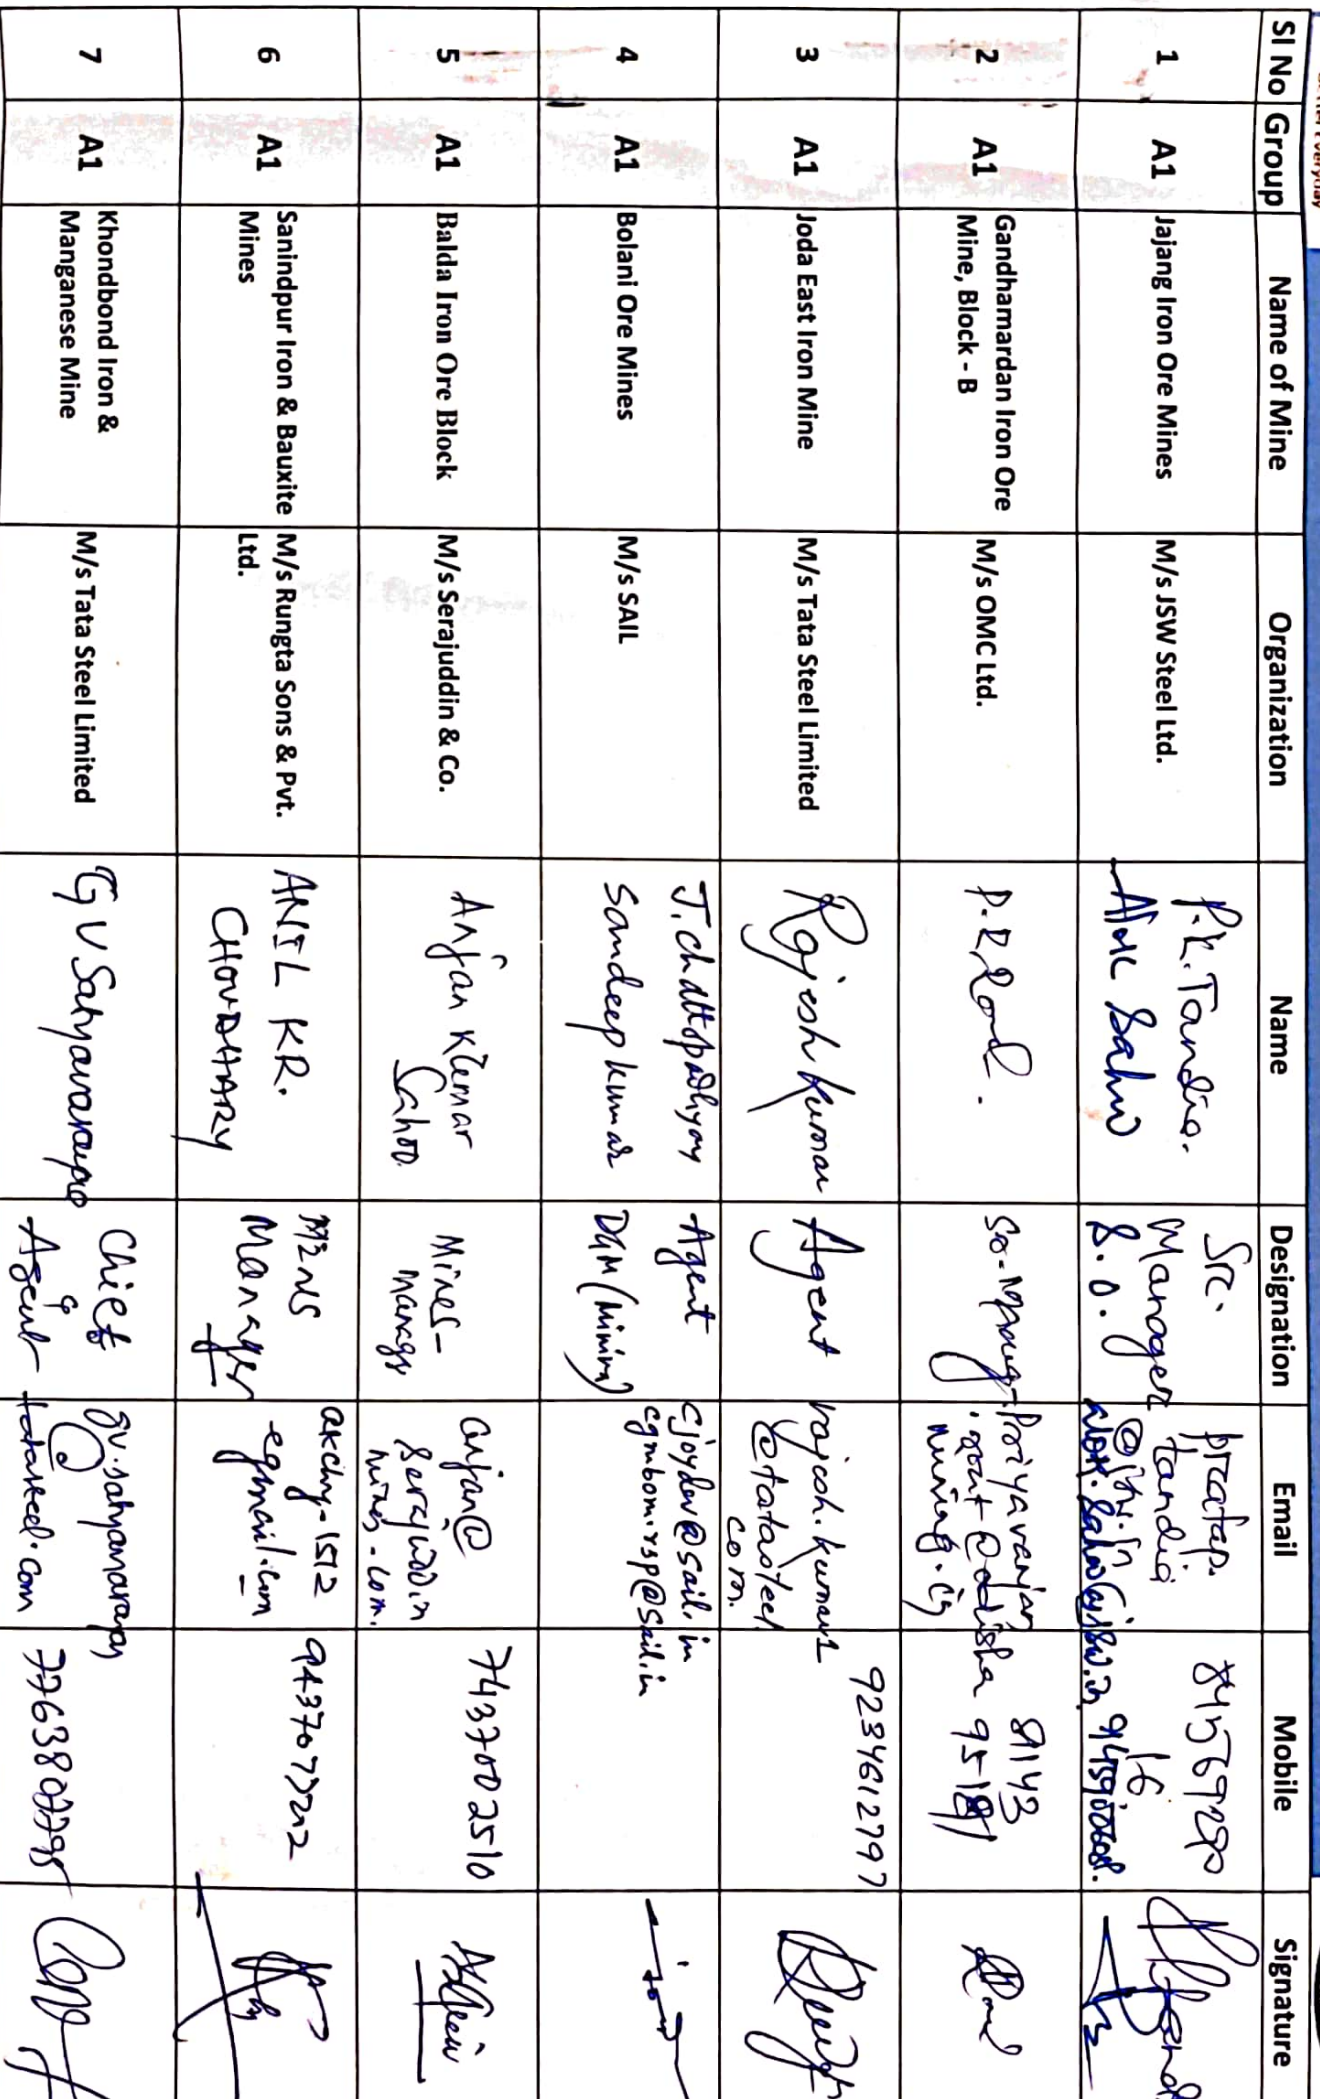 Sl No Group Name of Mine Organization Name Designation Email Mobile Signature
1 A1 Jajang Iron Ore Mines M/s JSW Steel Ltd.
P.K. Tandia.
Sr.
Manager
pratap.
tandia
@jsw.in
84569280
16
Alok Sahu
S.O.
alok.sahu@jsw.in
2 A1 Gandhamardan Iron Ore
Mine, Block - B
M/s OMC Ltd.
P.R. Rout.
mining.in
81143
3 A1 Joda East Iron Mine M/s Tata Steel Limited
Rajesh Kumar
Agent
rajesh.kumar1
@tatasteel
com.
9234612797
4 A1 Bolani Ore Mines M/s SAIL
J. Chattopadhyay
Agent
cjoydev@sail.in
Sandeep Kumar
DGM (Mining)
cgmbom.rsp@sail.in
5 A1 Balda Iron Ore Block M/s Serajuddin & Co.
Anjan Kumar
Sahoo
Mines-
Manager
anjan@
mines.com.
7437002510
6 A1 Sanindpur Iron & Bauxite
Mines
M/s Rungta Sons & Pvt.
Ltd.
ANIL KR.
CHOUDHARY
Mines
Manager
akchy-1512
@gmail.com
7 A1 Khondbond Iron &
Manganese Mine
M/s Tata Steel Limited
G V Satyanarayana
Chief
&
Agent
gv.satyanarayan
@
tatasteel.com